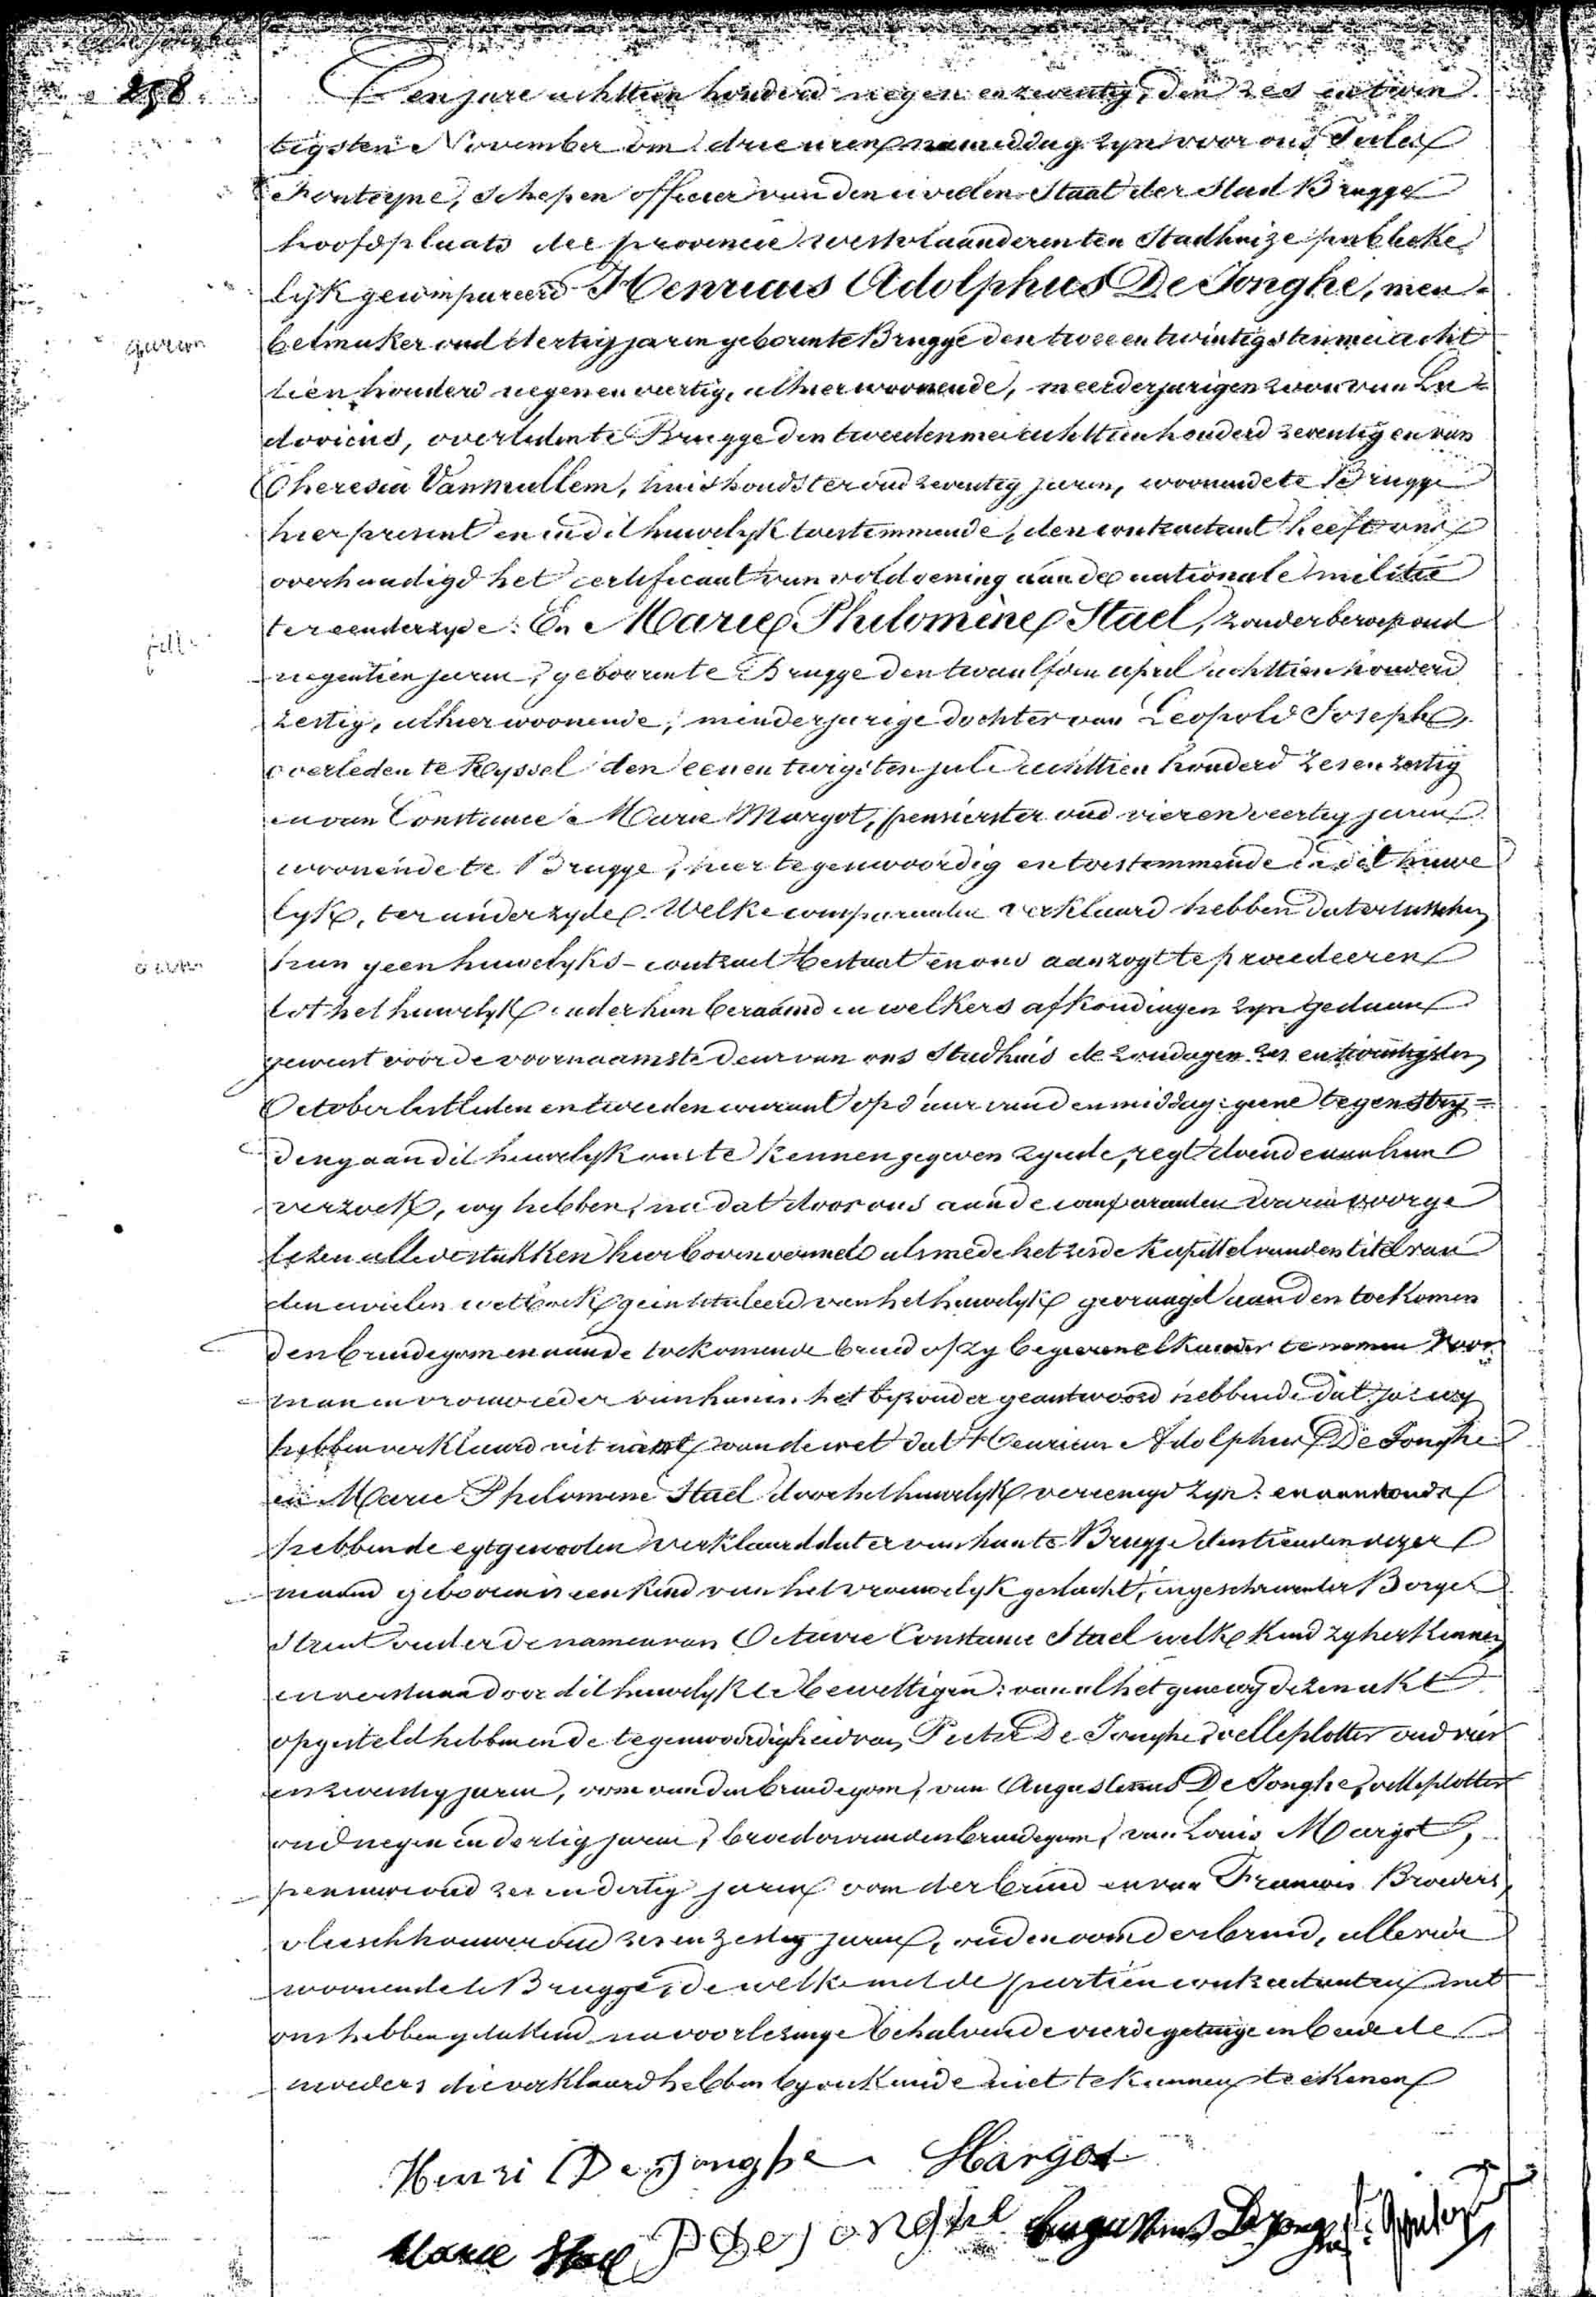 258
Ten jare achttien honderd negen en zeventig, den zes en twin
tigsten November om drie uren namiddag zyn voor ons Jules
Fonteyne, schepen officier van den civielen Staat der Stad Brugge
hoofdplaats der provincie westvlaanderen ten Stadhuize publieke
lyk gecompareerd Henricus Adolphus De Jonghe, meu-
belmaker oud dertig jaren geboren te Brugge den twee en twintigsten mei acht
garcon
tien honderd negen en veertig, alhier woonende, meerderjarigen zoon van Lu-
dovicus, overleden te Brugge den tweeden mei achttien honderd zeventig en van
Theresia Vanmullem, huishoudster oud zeventig jaren, woonende te Brugge
hier present en in dit huwelyk toestemmende, den contractant heeft ons
overhandigd het certificaat van voldoening aan de nationale militie
ter eenderzyde: En Marie Philomène Stael, zonder beroep oud
fille
negentien jaren, geboren te Brugge den twaalfden april achttien honderd
zestig, alhier woonende, minderjarige dochter van Leopold Joseph,
overleden te Ryssel den eenen twigsten juli achttien honderd zes en zestig
en van Constance Marie Margot, penierster oud vier en veertig jaren
woonende te Brugge, hier tegenwoordig en toestemmende in dit huwe
lyk, ter anderzyde. Welke comparanten verklaard hebben dat er tusschen
hun geen huwelyks-contract bestaat en ons aanzogt te procedeeren
tot het huwelyk onder hun beraamd en welkers afkondingen zyn gedaan
geweest voor de voornaamste deur van ons Stadhuis de zondagen zes en twintigsten
October lestleden en tweeden courant op d'uur van den middag: geene tegenstry=
ding aan dit huwelyk ons te kennen gegeven zynde, regt doende aan hun
verzoek, wy hebben, na dat door ons aan de comparanten waren voorge
lezen alle de stukken hier boven vermeld alsmede het zesde kapittel van den titel van
den civielen wetboek geintituleerd van het huwelyk gevraagd aan den toekomen
den bruidegom en aan de toekomende bruid of zy begeeren elkander te nemen voor
man en vrouw ieder van hun in het byzonder geantwoord hebbende dat ja: wy
hebben verklaard uit naam van de wet dat Henricus Adolphus De Jonghe
en Marie Philomene Stael door het huwelyk vereenigd zyn: en aanstonds
hebbende egtgenooten verklaard dat er van hun te Brugge den tienden dezer
maand geboren is een kind van het vrouwelyk geslacht, ingeschreven ter Borger
Staat onder de namen van Octavie Constance Stael welk kind zy herkennen
en verstaan door dit huwelyk te bewettigen: van al het gene wy dezen akt
opgesteld hebben in de tegenwoordigheid van Pieter De Jonghe, velleplotter oud vier
en zeventig jaren, oom van den bruidegom, van Augustinus De Jonghe, velleplotter
oud negen en dertig jaren, broeder van den bruidegom, van Louis Margot,
pennier oud zes en dertig jaren oom der bruid en van Francois Broeders,
vleeschhouwer oud zes en zestig jaren, oud en oom der bruid, alle vier
woonende te Brugge, de welke met de partien contractanten met
ons hebben geteekend na voorlezinge behalven de vierde getuige en beide de
moeders die verklaard hebben by onkunde niet te kunnen teekenen
Henri Dejonghe Margot
Marie Stael P De jonghe Augustinus De Jonghe